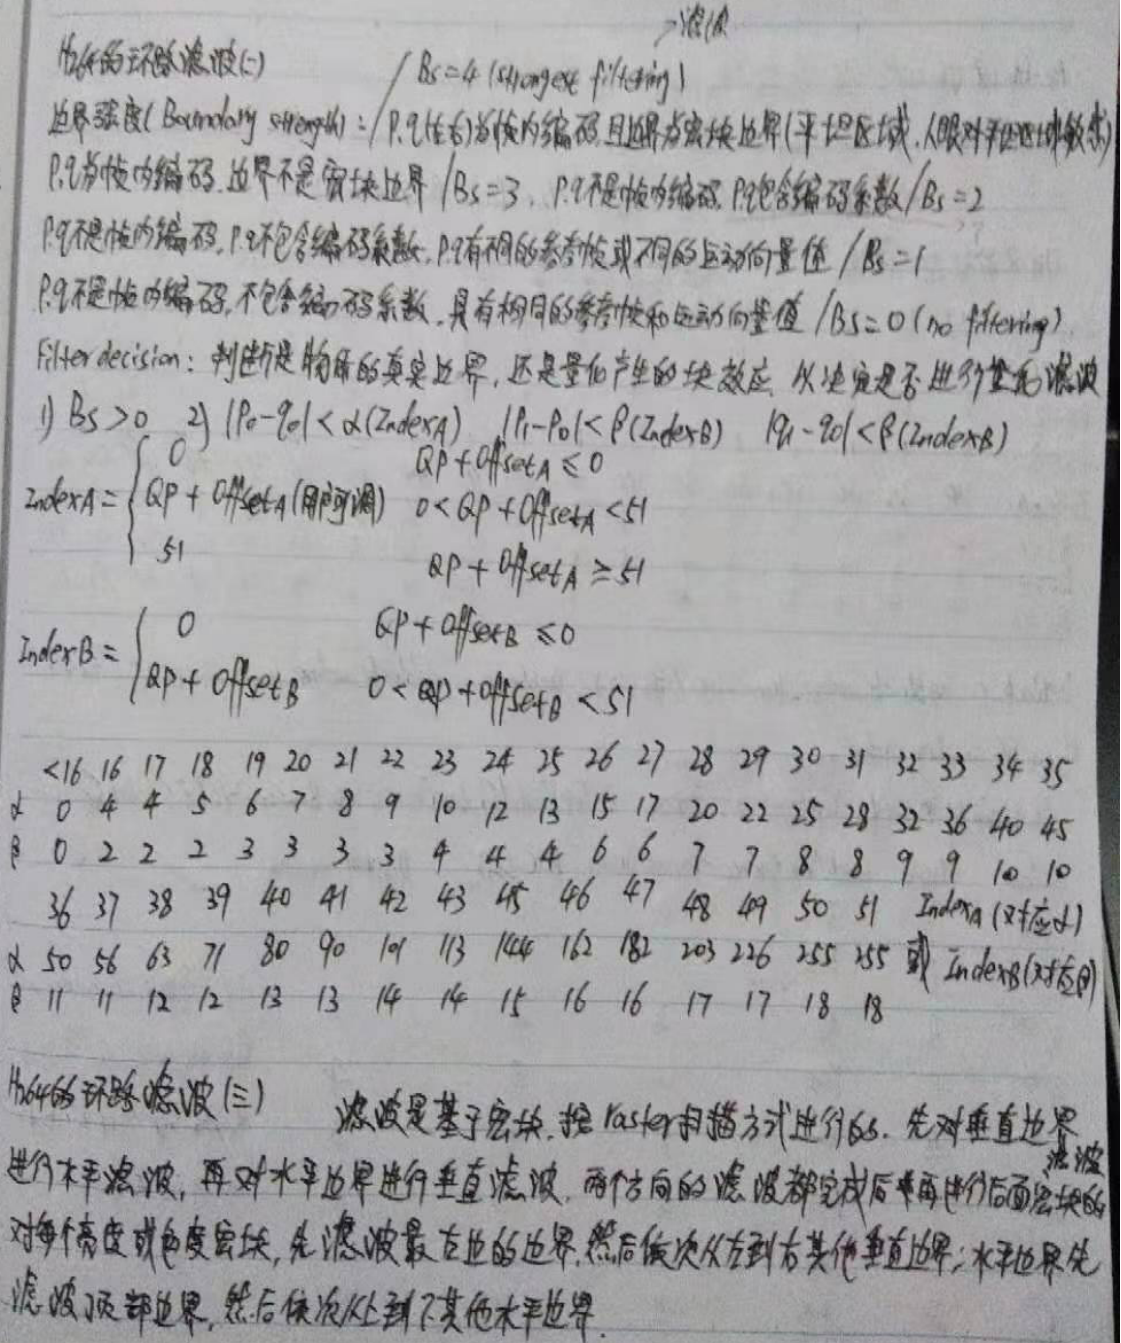 →滤波
H264的环路滤波(二) / Bs=4 (strongest filtering)
边界强度(Boundary strength):/P.q(左右)为帧内编码,且边界为宏块边界(平坦区域,人眼对平坦区域敏感)
P.q为帧内编码,边界不是宏块边界/Bs=3, P.q不是帧内编码,P.q包含编码系数/Bs=2
P.q不是帧内编码,P.q不包含编码系数,P.q有不同的参考帧或不同的运动向量值/Bs=1
P.q不是帧内编码,不包含编码系数,具有相同的参考帧和运动向量值/Bs=0(no filtering)
Filter decision: 判断是物体的真实边界,还是量化产生的块效应,从决定是否进行滤波
1) Bs>0 2) |P0-q0|<α(IndexA) |P1-P0|<β(IndexB) |q1-q0|<β(IndexB)
IndexA={ 0 QP+OffsetA≤0
QP+OffsetA(用户可调) 0<QP+OffsetA<51
51 QP+OffsetA≥51
IndexB={ 0 QP+OffsetB≤0
QP+OffsetB 0<QP+OffsetB<51
<16 16 17 18 19 20 21 22 23 24 25 26 27 28 29 30 31 32 33 34 35
α 0 4 4 5 6 7 8 9 10 12 13 15 17 20 22 25 28 32 36 40 45
β 0 2 2 2 3 3 3 3 4 4 4 6 6 7 7 8 8 9 9 10 10
36 37 38 39 40 41 42 43 45 46 47 48 49 50 51 IndexA(对应α)
α 50 56 63 71 80 90 101 113 144 162 182 203 226 255 255 或 IndexB(对应β)
β 11 11 12 12 13 13 14 14 15 16 16 17 17 18 18
H264的环路滤波(三) 滤波是基于宏块,按raster扫描方式进行的.先对垂直边界
进行水平滤波,再对水平边界进行垂直滤波,两个方向的滤波都完成后再进行后面宏块的滤波
对每个亮度或色度宏块,先滤波最左边的边界,然后依次从左到右其他垂直边界;水平边界先
滤波顶部边界,然后依次从上到下其他水平边界.